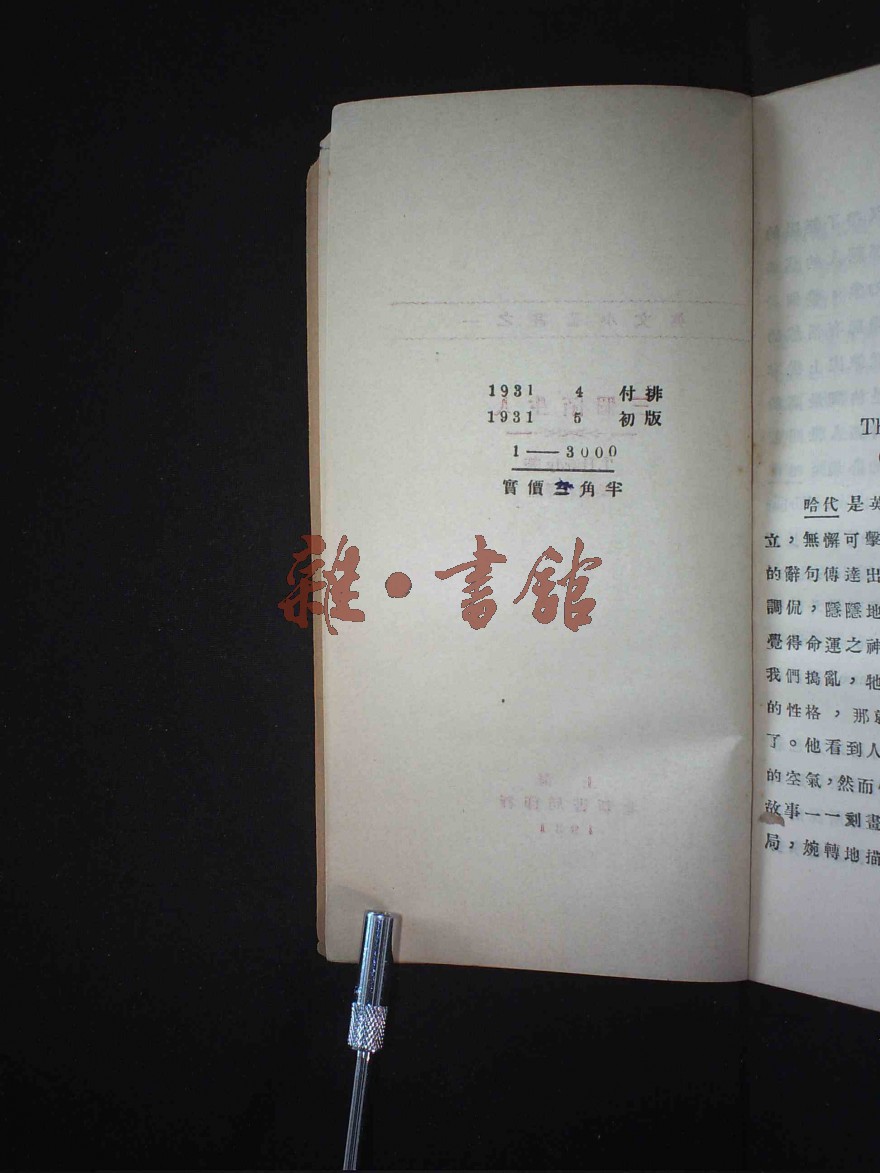 1931 4 付排
1931 5 初版
1——3000
實價 角半
雜·書館
哈代是英
立，無懈可擊
的辭句傳達出
調侃，隱隱地
覺得命運之神
我們搗亂，牠
的性格，那
了。他看到人
的空氣，然而
故事一一刻畫
局，婉轉地描